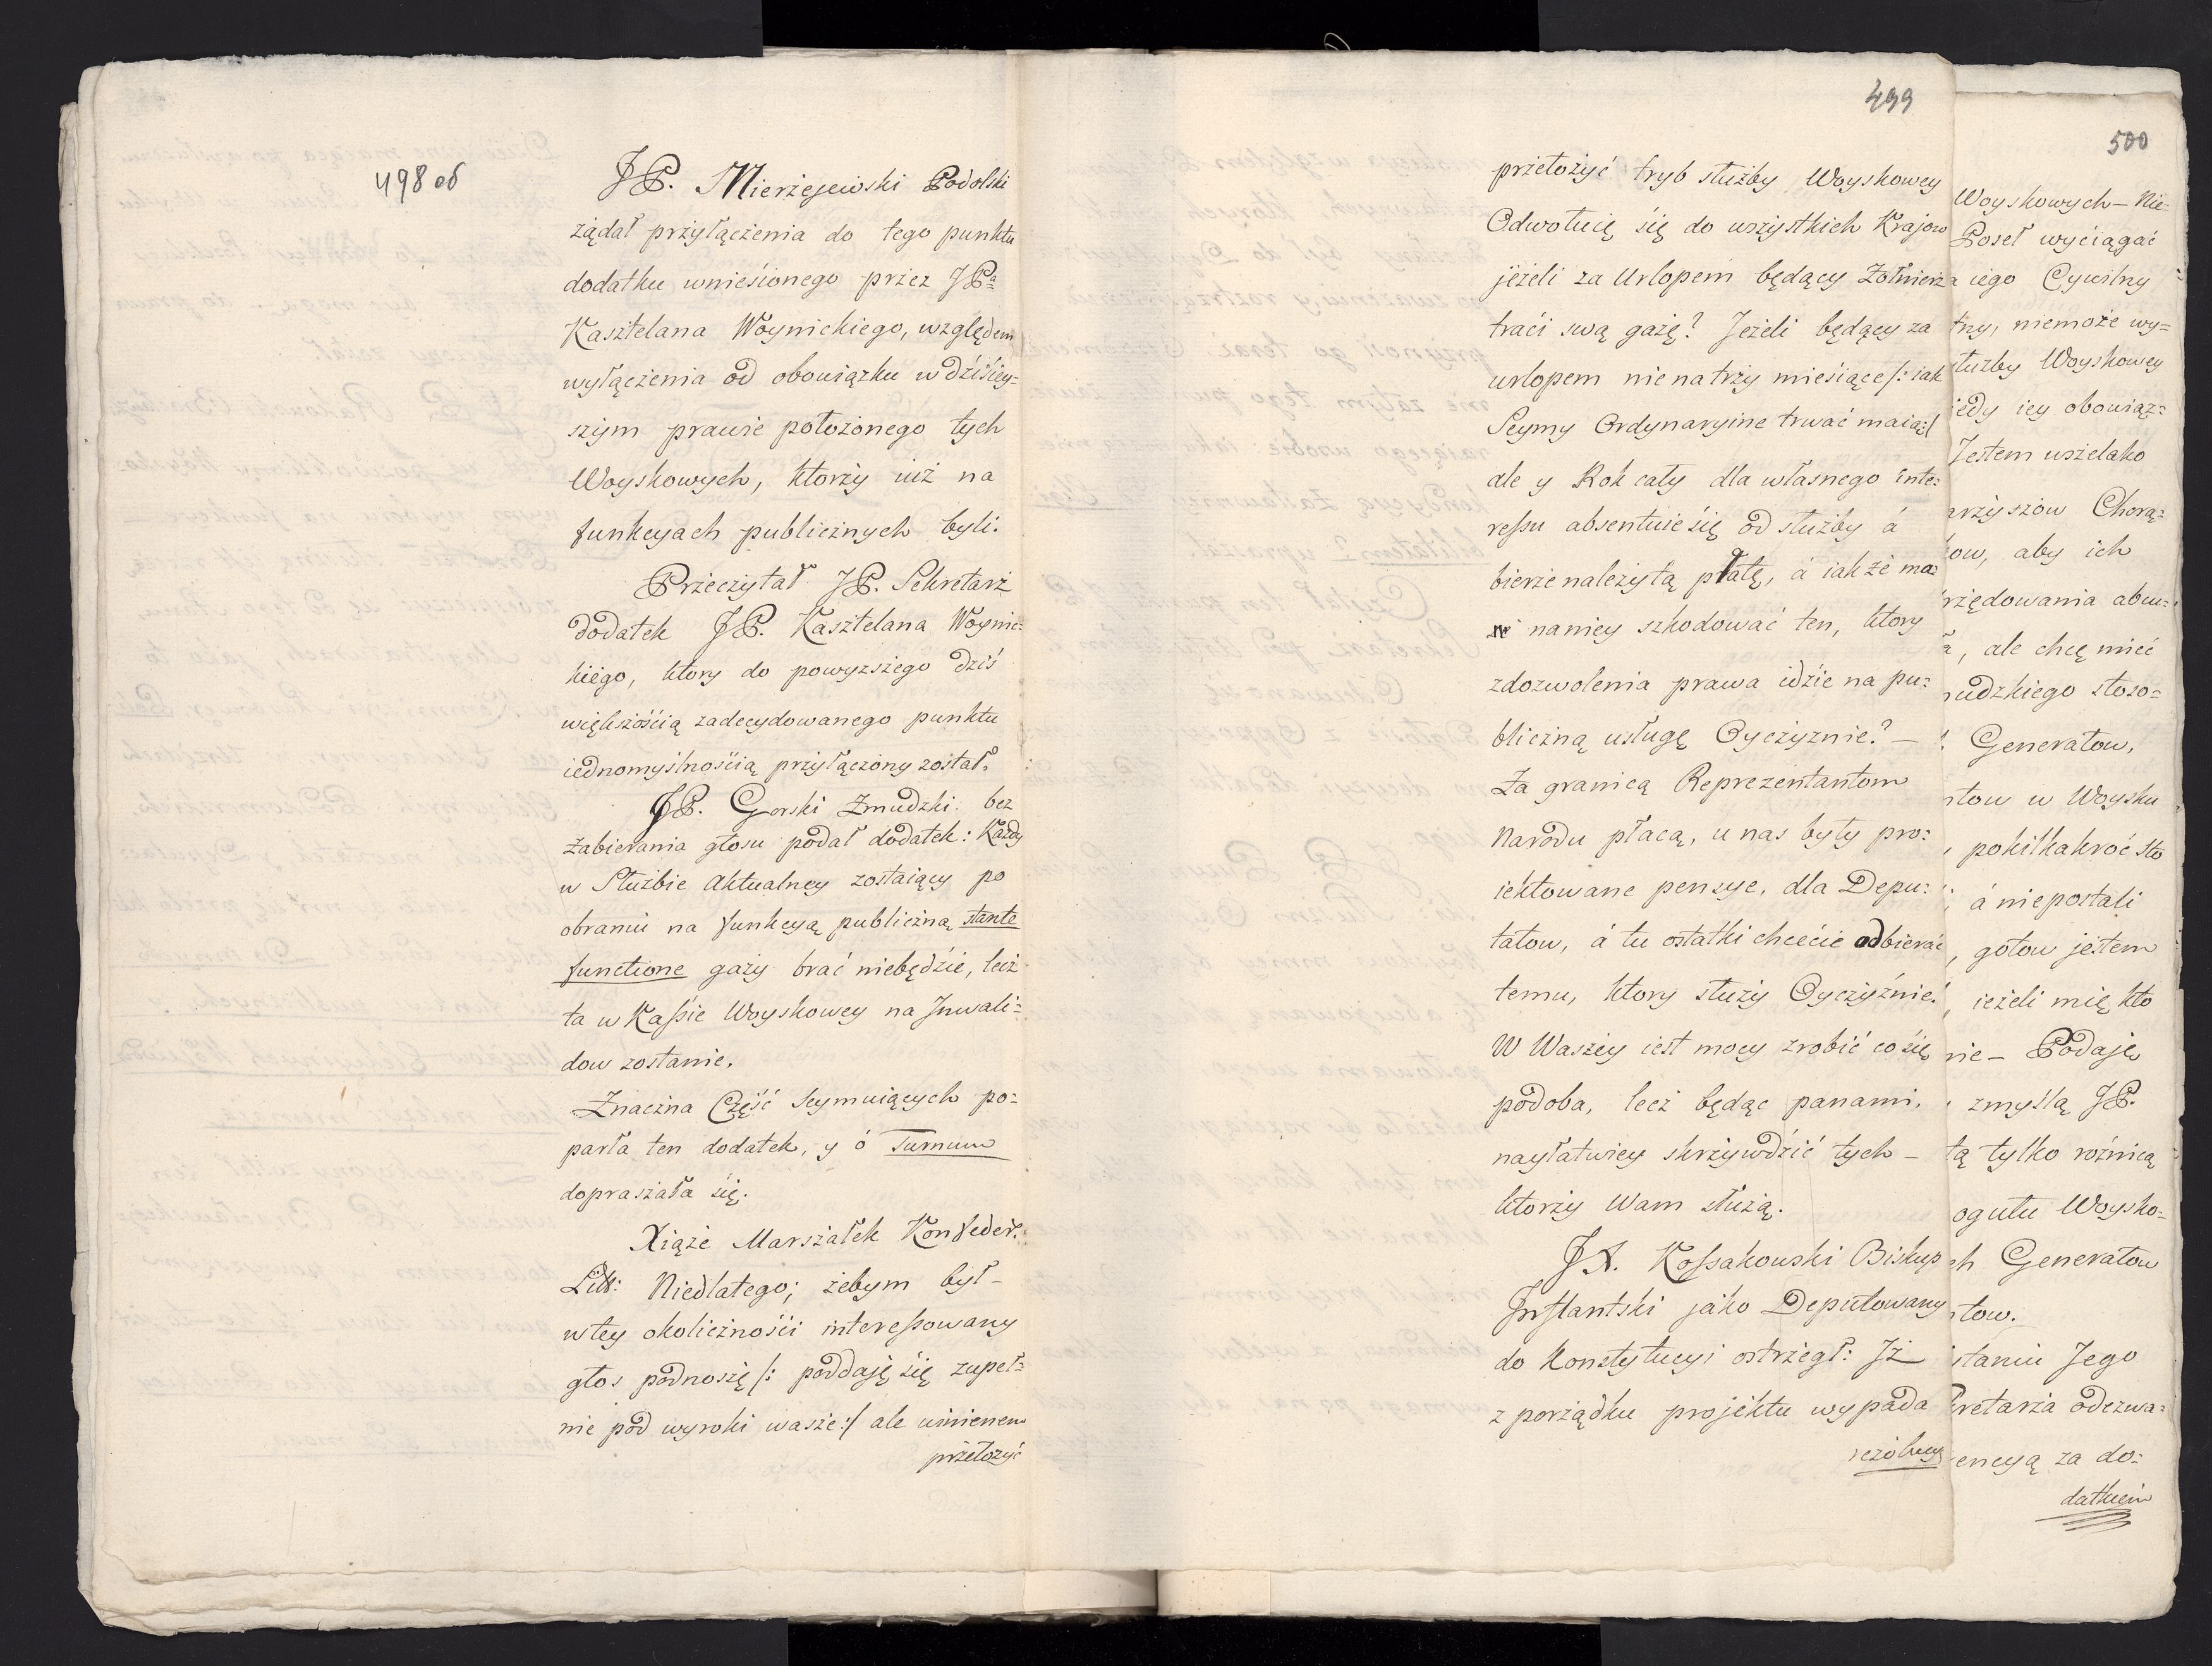 498 об
JP. Mierzejewski Podolski
żądał przyłączenia do tego punktu
dodatku wnieśionego przez JPa
Kasztelana Woynickiego, względem
wyłączenia od obowiązku w dźiśiey=
szym prawie położonego tych
Woyskowych, ktorzy iuż na
funkcyach publicznych byli.
Przeczytał JP. Sekretarz
dodatek JP. Kasztelana Woynic=
kiego, ktory do powyższego dziś
większośćią zadecydowanego punktu
iednomyślnośćią przyłączony został.
JP. Gorski Zmudzki bez
zabierania głosu podał dodatek: Każdy
w Służbie aktualney zostaiący po
obraniu na funkcyą publiczną stante
functione gaży brać niebędźie, lecz
ta w Kaſsie Woyskowey na Inwali=
dow zostanie.
Znaczna Część Seymuiących po=
parła ten dodatek, y ó Turnum
dopraszała śię.
Xiąże Marszałek Konfeder:
Litt: Niedlatego; żebym był –
w tey okolicznośći intereſsowany
głos podnoszę /: poddaję śię zupeł=
nie pod wyroki wasze:/ ale winienem
przełożyć
499
przełożyć tryb służby Woyskowey
Odwołuię śię do wszystkich Krajow
jeżeli za Urlopem będący Żołnierz
traći swą gażę? Jeżeli będący za
urlopem nie na trzy mieśiące /: iak
Seymy Ordynaryine trwać maią:/
ale y Rok cały dla własnego inte=
reſsu absentuie śię od służby á
bierze należytą płatę, á iak że ma=
naniey szkodować ten, ktory
zdozwolenia prawa idźie na pu=
bliczną usługę Oyczyznie? –
Za granicą Reprezentantom
Narodu płacą, u nas były pro=
iektowane pensye, dla Depu=
tatow, á tu ostatki chcećie odbierać
temu, ktory służy Oyczyźnie!
W Waszey iest mocy zrobić co śię
podoba, lecz będąc panami,
nayłatwiey skrzywdźić tych –
ktorzy Wam służą.
JX. Koſsakowski Biskup
Inflantski jáko Deputowany
do Konstytucyi ostrzegł: Iż
z porządku projektu wypada
rezolucya
500
Woyskowych – Nie=
Poseł wyćiągać
a iego Cywilny
tny, niemoże wy=
służby Woyskowey
iedy iey obowiąz=
Jestem wszelako
arzyszow Chorą=
kow, aby ich
rzędowania abw=
a, ale chcę mieć
mudzkiego stoso=
Generałow,
ntow w Woysku
, pokilkakroć sto
; á niepostali
, gotow jestem
, ieżeli mię kto
nie – Podaję
zmyślą JP.
tą tylko roźnicą
ogułu Woysko=
ch Generałow
ntow.
staniu Jego
kretarza odezwa=
encyą za do=
datkiem